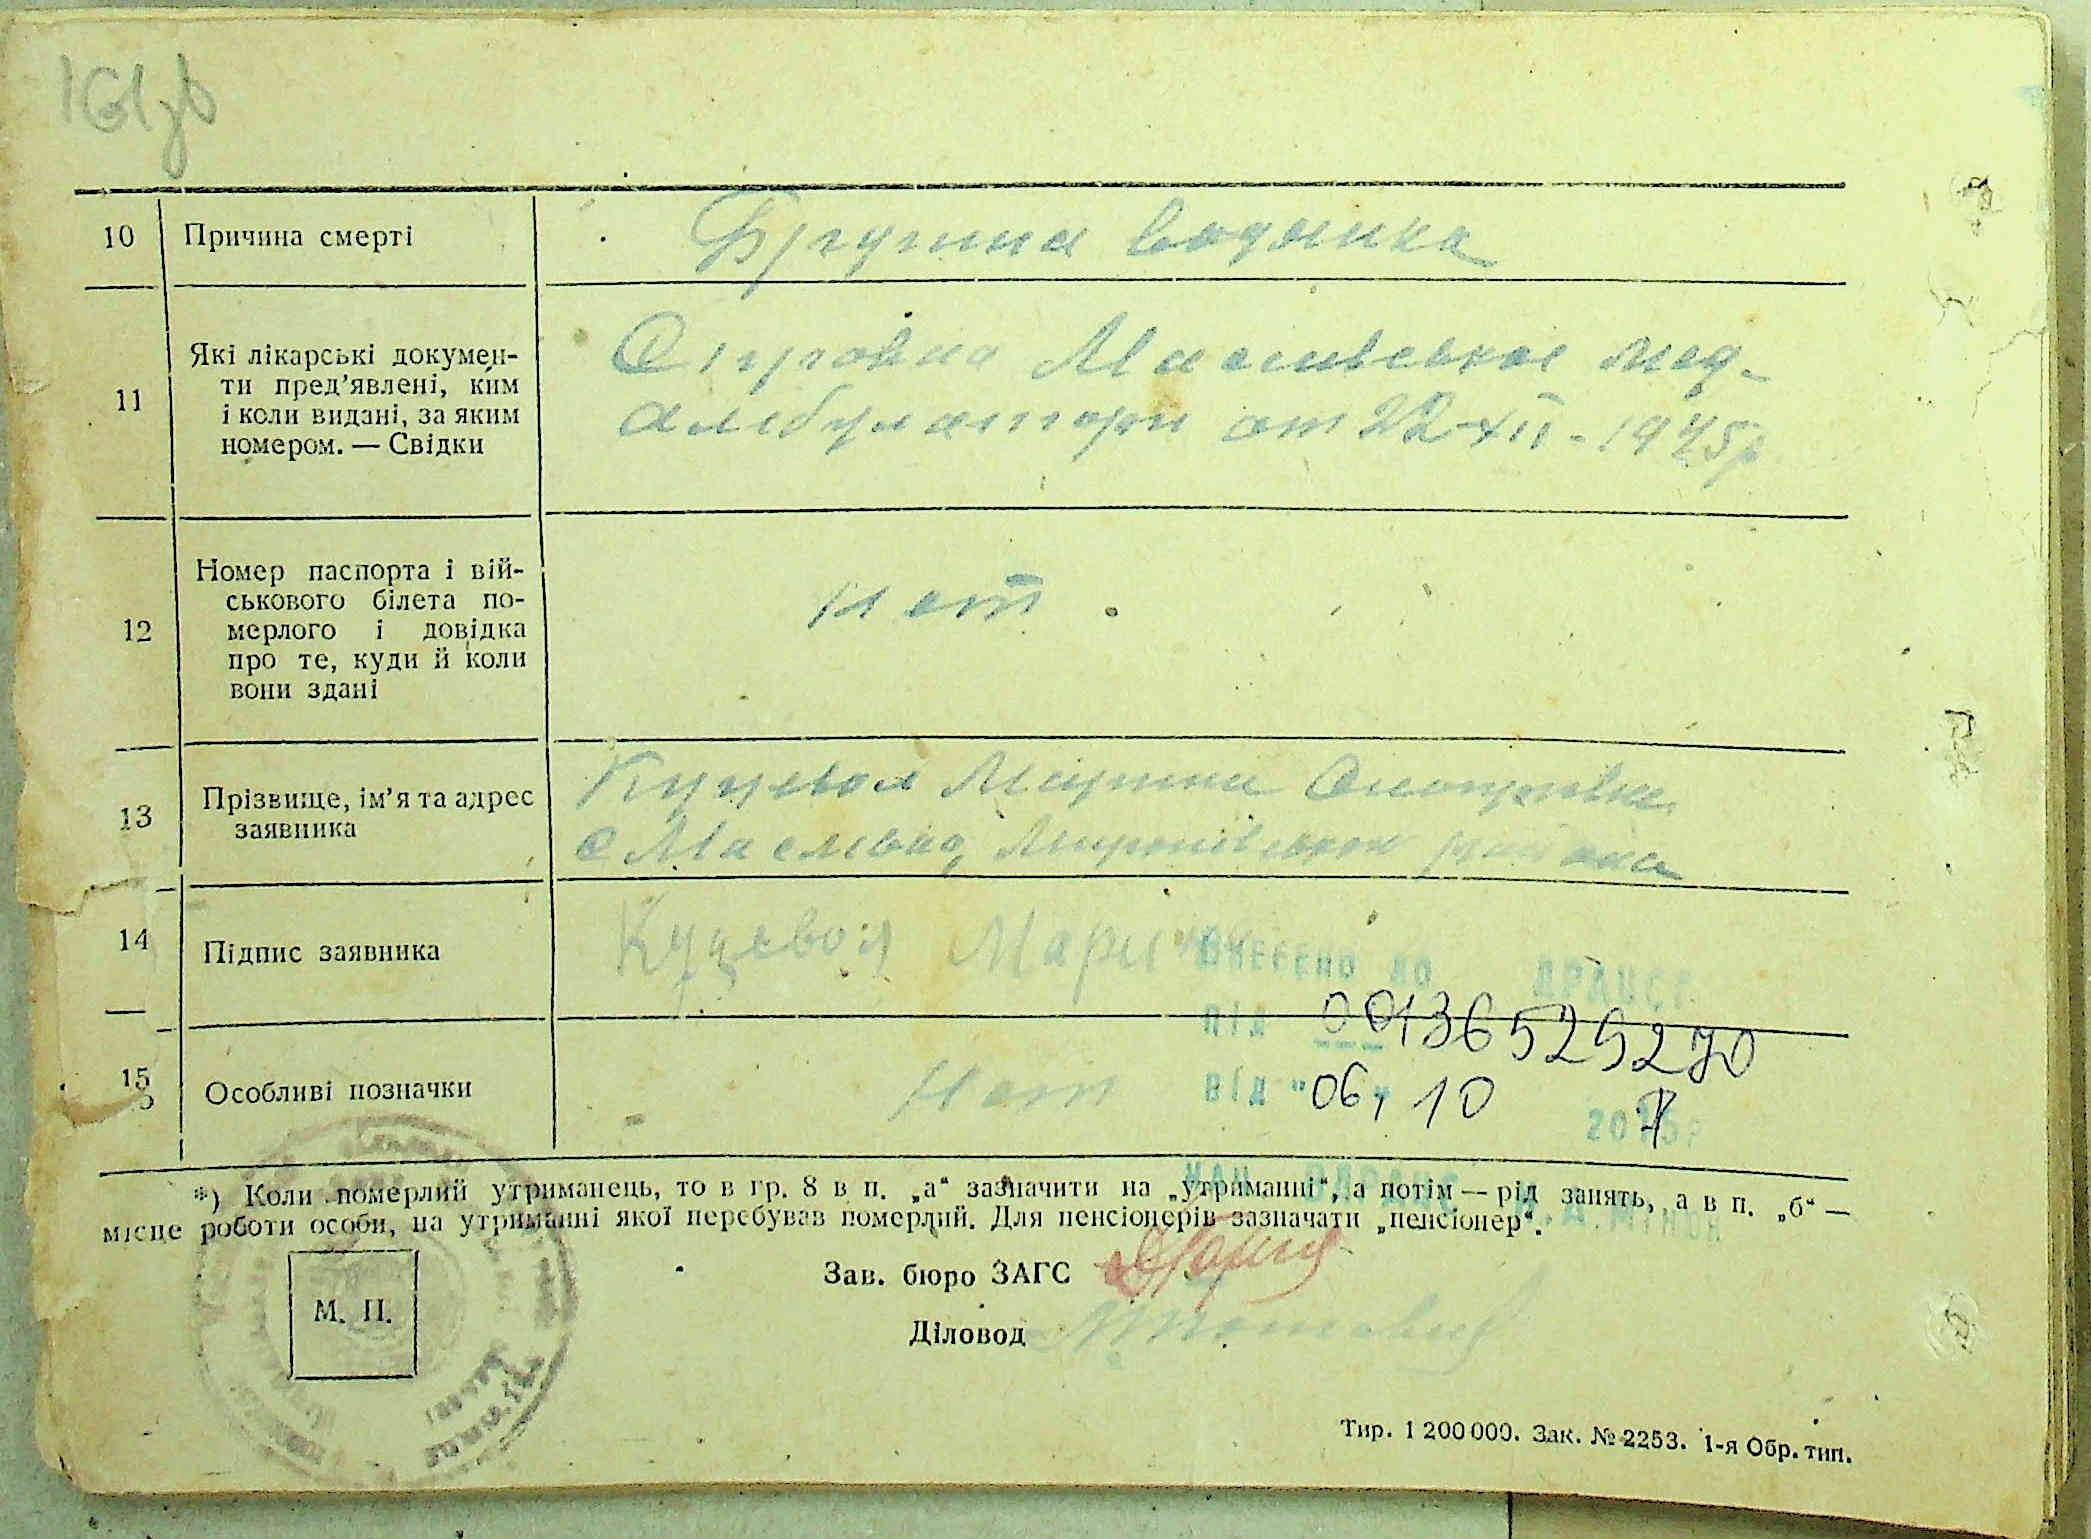 161зв
10 Причина смерті водянка
11 Які лікарські докумен-
ти пред’явлені, ким
і коли видані, за яким
номером. — Свідки
Справка Маслівської мед-
амбулаторіи от 22-XII-1945р
12 Номер паспорта і вій-
ськового білета по-
мерлого і довідка
про те, куди й коли
вони здані
Нет
13 Прізвище, ім’я та адрес
заявника
Куцевол Марина
с Маслівка, Миронівського района
14 Підпис заявника Куцевол Марина
ВНЕСЕНО ДО ДРАЦСГ
ПІД 00136529270
15 Особливі позначки Нет
ВІД "06, 10 201
*) Коли померлий утриманець, то в гр. 8 в п. „а“ зазначити на „утриманні“, а потім — рід занять, а в п. „б“ —
місце роботи особи, на утриманні якої перебував померлий. Для пенсіонерів зазначати „пенсіонер“.
Зав. бюро ЗАГС
М. П.
Діловод
Тир. 1 200 000. Зак. № 2253. 1-я Обр. тип.